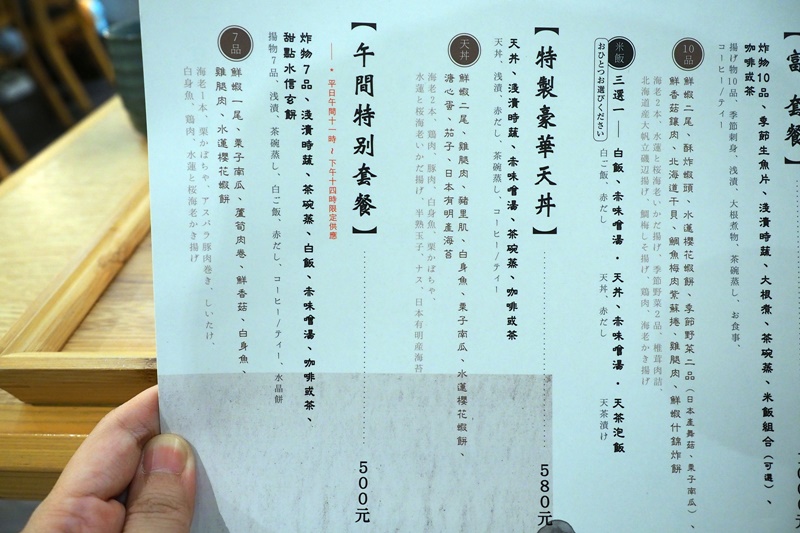 套餐】
炸物10品、季節生魚片、淺漬時蔬、大根煮、茶碗蒸、米飯組合(可選)、
咖啡或茶
揚げ物10品、季節刺身、浅漬、大根煮物、茶碗蒸し、お食事、
コーヒー/ティー
10品
鮮蝦二尾、酥炸蝦頭、水蓮櫻花蝦餅、季節野菜二品(日本產舞菇、栗子南瓜)、
鮮香菇鑲肉、北海道干貝、鯛魚梅肉紫蘇捲、雞腿肉、鮮蝦什錦炸餅
海老2本、水蓮と桜海老いかだ揚げ、季節野菜2品、椎茸肉詰、
北海道産大帆立磯辺揚げ、鯛梅しそ揚げ、鶏肉、海老かき揚げ
米飯
おひとつお選びください
三選一 —— 白飯、赤味噌湯 · 天丼、赤味噌湯 · 天茶泡飯
白ご飯、赤だし 天丼、赤だし 天茶漬け
【特製豪華天丼】
580元
天丼、淺漬時蔬、赤味噌湯、茶碗蒸、咖啡或茶
天丼、浅漬、赤だし、茶碗蒸し、コーヒー/ティー
天丼
鮮蝦二尾、雞腿肉、豬里肌、白身魚、栗子南瓜、水蓮櫻花蝦餅、
溏心蛋、茄子、日本有明產海苔
海老2本、鶏肉、豚肉、白身魚、栗かぼちゃ、
水蓮と桜海老いかだ揚げ、半熟玉子、ナス、日本有明産海苔
【午間特別套餐】
500元
—— • 平日午間十一時~下午十四時限定供應
炸物7品、淺漬時蔬、茶碗蒸、白飯、赤味噌湯、咖啡或茶、
甜點水信玄餅
揚物7品、浅漬、茶碗蒸し、白ご飯、赤だし、コーヒー/ティー、水晶餅
7品
鮮蝦一尾、栗子南瓜、蘆筍肉卷、鮮香菇、白身魚、
雞腿肉、水蓮櫻花蝦餅
海老1本、栗かぼちゃ、アスパラ豚肉巻き、しいたけ、
白身魚、鶏肉、水蓮と桜海老かき揚げ